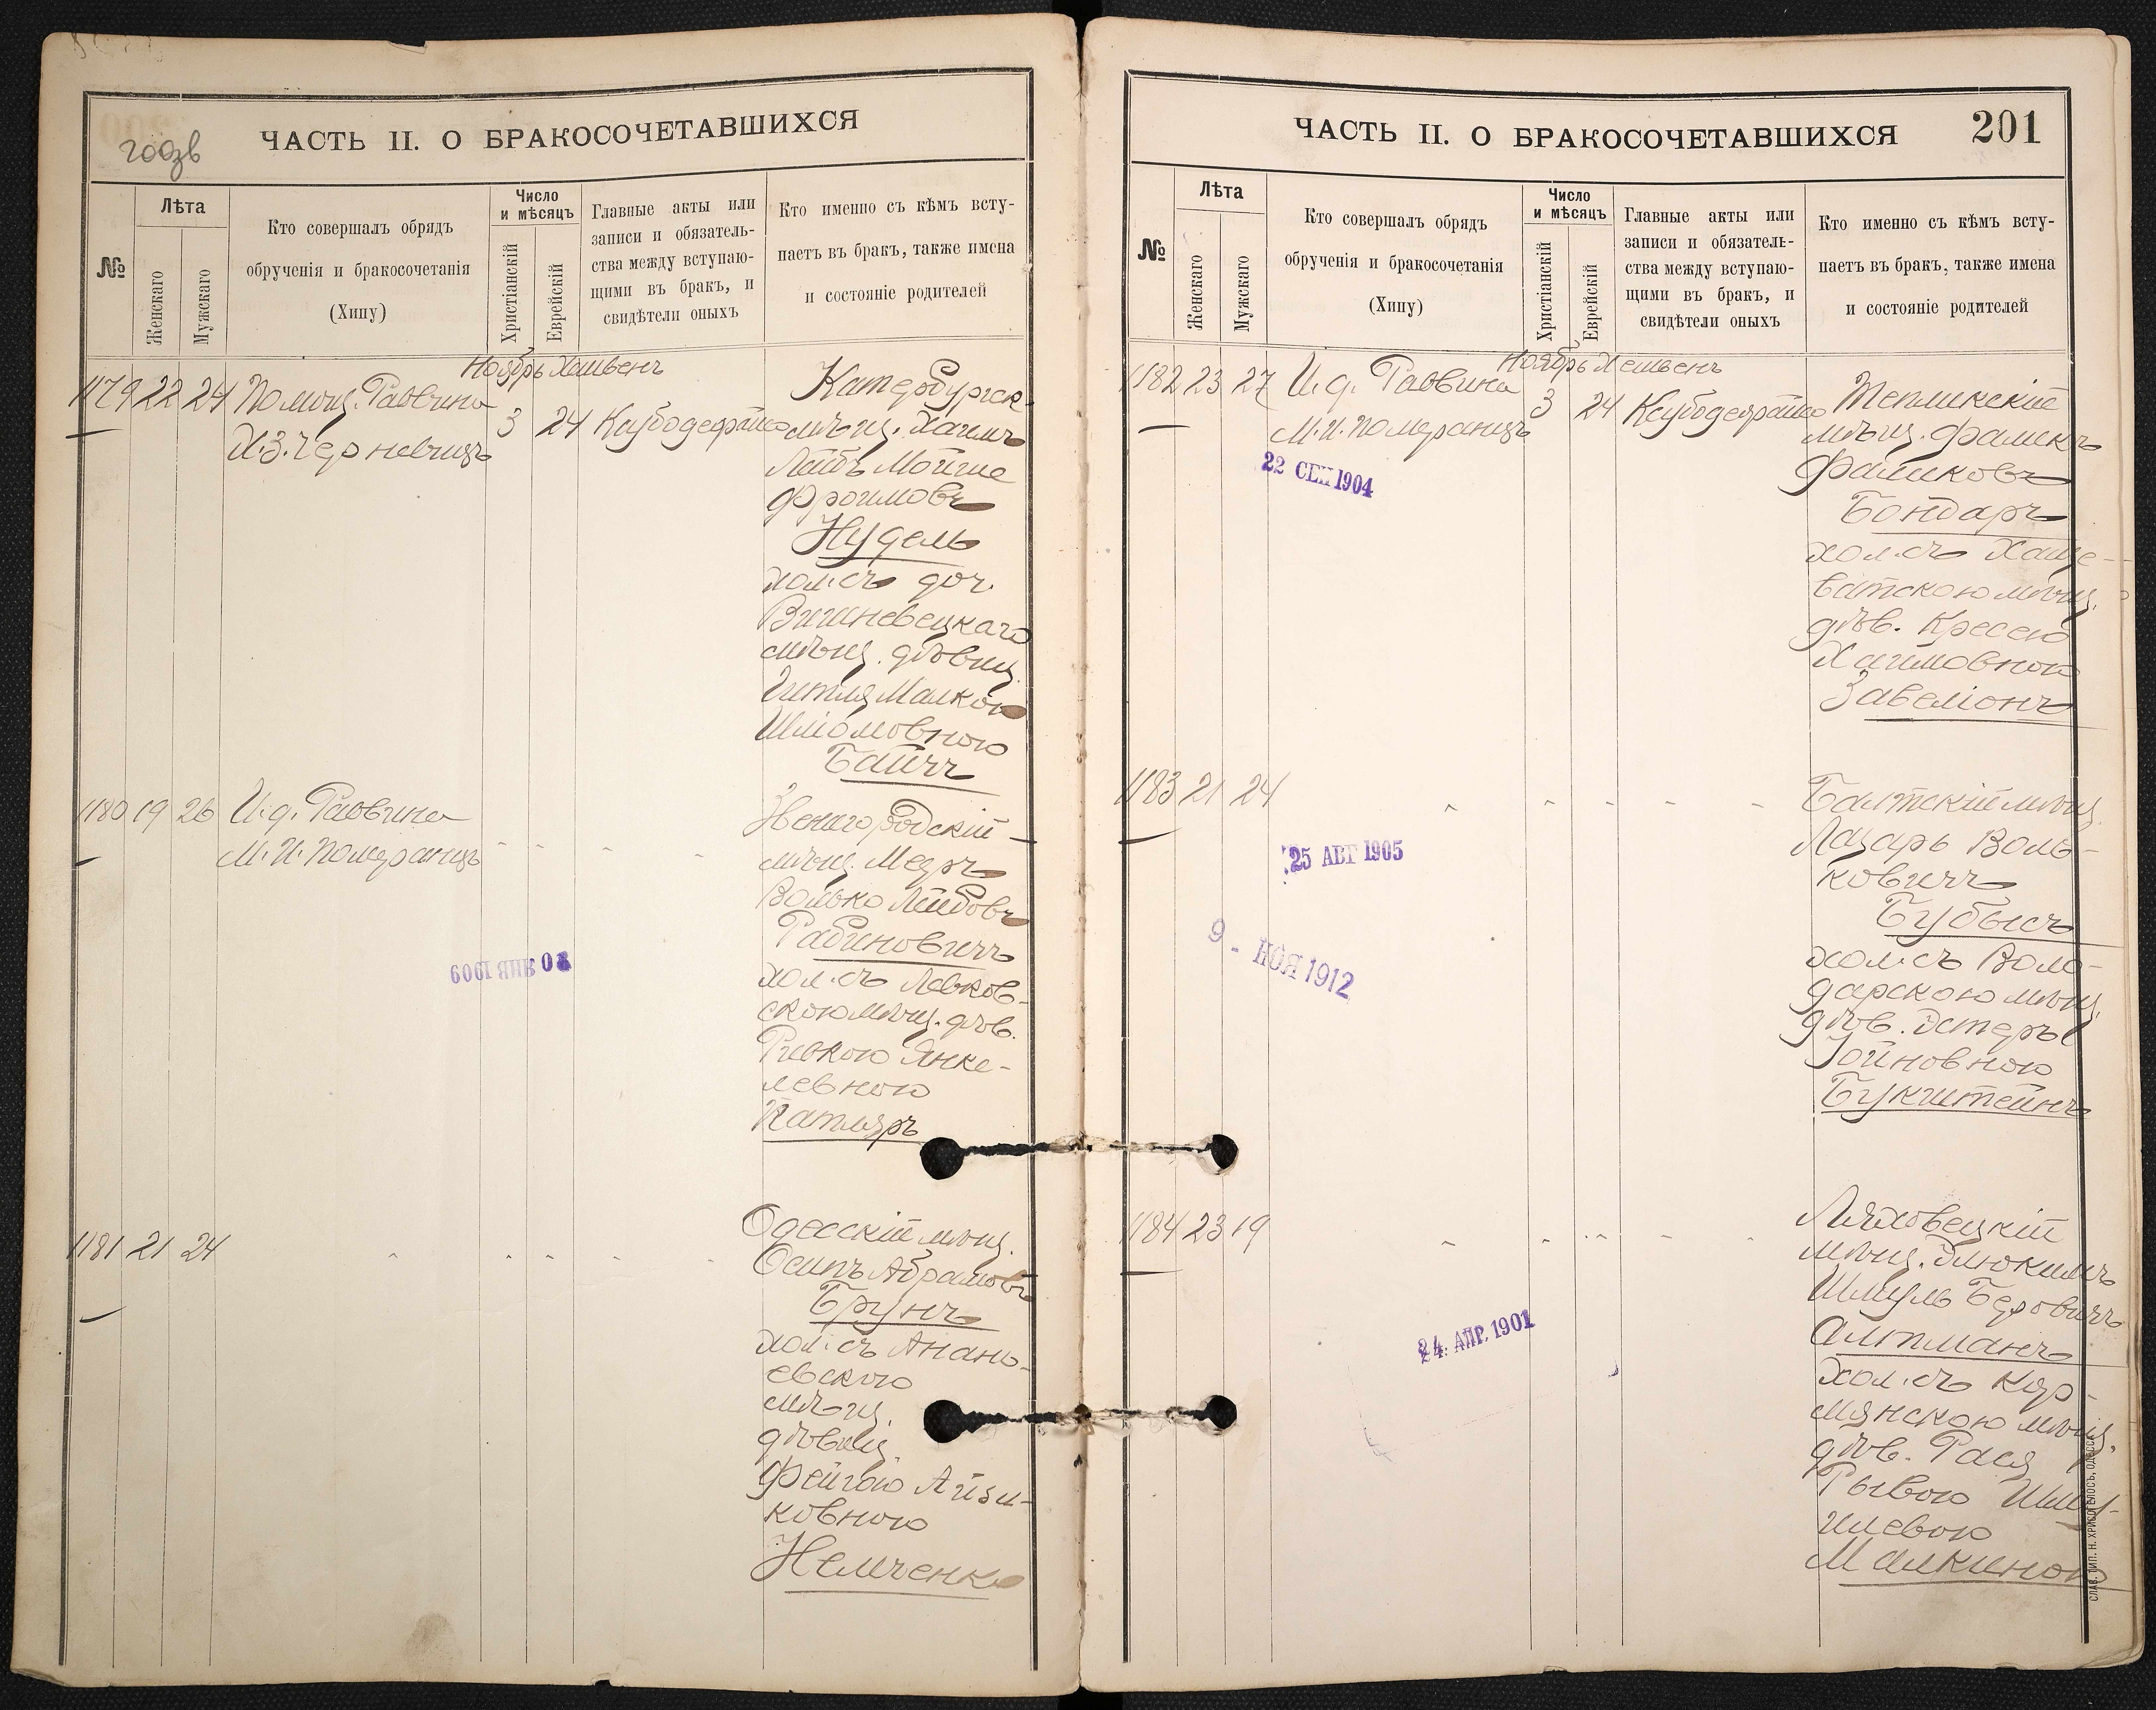 ЧАСТЬ II. О БРАКОСОЧЕТАВШИХСЯ
№
Лѣта
Женскаго
Мужскаго
Кто совершалъ обрядъ
обрученія и бракосочетанія
(Хипу)
Число
и мѣсяцъ
Христіанскій
Еврейскій
Главные акты или
записи и обязатель-
ства между вступаю-
щими въ бракъ, и
свидѣтели оныхъ
Кто именно съ кѣмъ всту-
паетъ въ бракъ, также имена
и состояніе родителей
Ноябрь Хешвенъ
1179 22 24 Помощ. Раввина
Х.З. Черновчицъ
3 24 Ксубодефрайто
Катербургск.
мѣщ. Хаимъ
Лейбъ Мойше
Фроимовъ
Нудель
хол. съ доч.
Вишневецкаго
мѣщ. дѣвиц.
Гитля Малкою
Шліомовною
Байчъ
1180 19 26 И.д. Раввина
М.И. Померанцъ
20 ЯНВ 1909
Звенигородскій
мѣщ. Мееръ
Волько Лейбовъ
Рабиновичъ
хол. съ Левков-
скою мѣщ. дѣв.
Ривкою Янке-
левною
Катляръ
1181 21 24
Одесскій мѣщ.
Осипъ Абрамовъ
Брунъ
хол. съ Анань-
евскою
мѣщ.
дѣвиц.
Фейгою Айзи-
ковною
Немченко
ЧАСТЬ II. О БРАКОСОЧЕТАВШИХСЯ
201
№
Лѣта
Женскаго
Мужскаго
Кто совершалъ обрядъ
обрученія и бракосочетанія
(Хипу)
Число
и мѣсяцъ
Христіанскій
Еврейскій
Главные акты или
записи и обязатель-
ства между вступаю-
щими въ бракъ, и
свидѣтели оныхъ
Кто именно съ кѣмъ всту-
паетъ въ бракъ, также имена
и состояніе родителей
Ноябрь Хешвенъ
1182 23 27 И.д. Раввина
М.И. Померанцъ
3 24 Ксубодефрайто
22 СЕН 1904
Тепликскій
мѣщ. Фаликъ
Фаликовъ
Бондаръ
хол. съ Хаще-
ватскою мѣщ.
дѣв. Кресею
Хаимовною
Завеліонъ
1183 21 24
25 АВГ 1905
9 - НОЯ 1912
Балтскій мѣщ.
Лазарь Воль-
ковичъ
Бубысъ
хол. съ Воло-
дарскою мѣщ.
дѣв. Эстеръ
Іойновною
Букштейнъ
1184 23 19
24. АПР. 1901
Ляховецкій
мѣщ. Элюкимъ
Шмуль Беровичъ
Альтманъ
хол. съ Кор-
мянскою мѣщ.
дѣв. Рася
Рывою Шму-
илевою
Малкиною
СЛАВ. ТИП. Н. ХРИСОГЕЛОСЪ, ОДЕССА